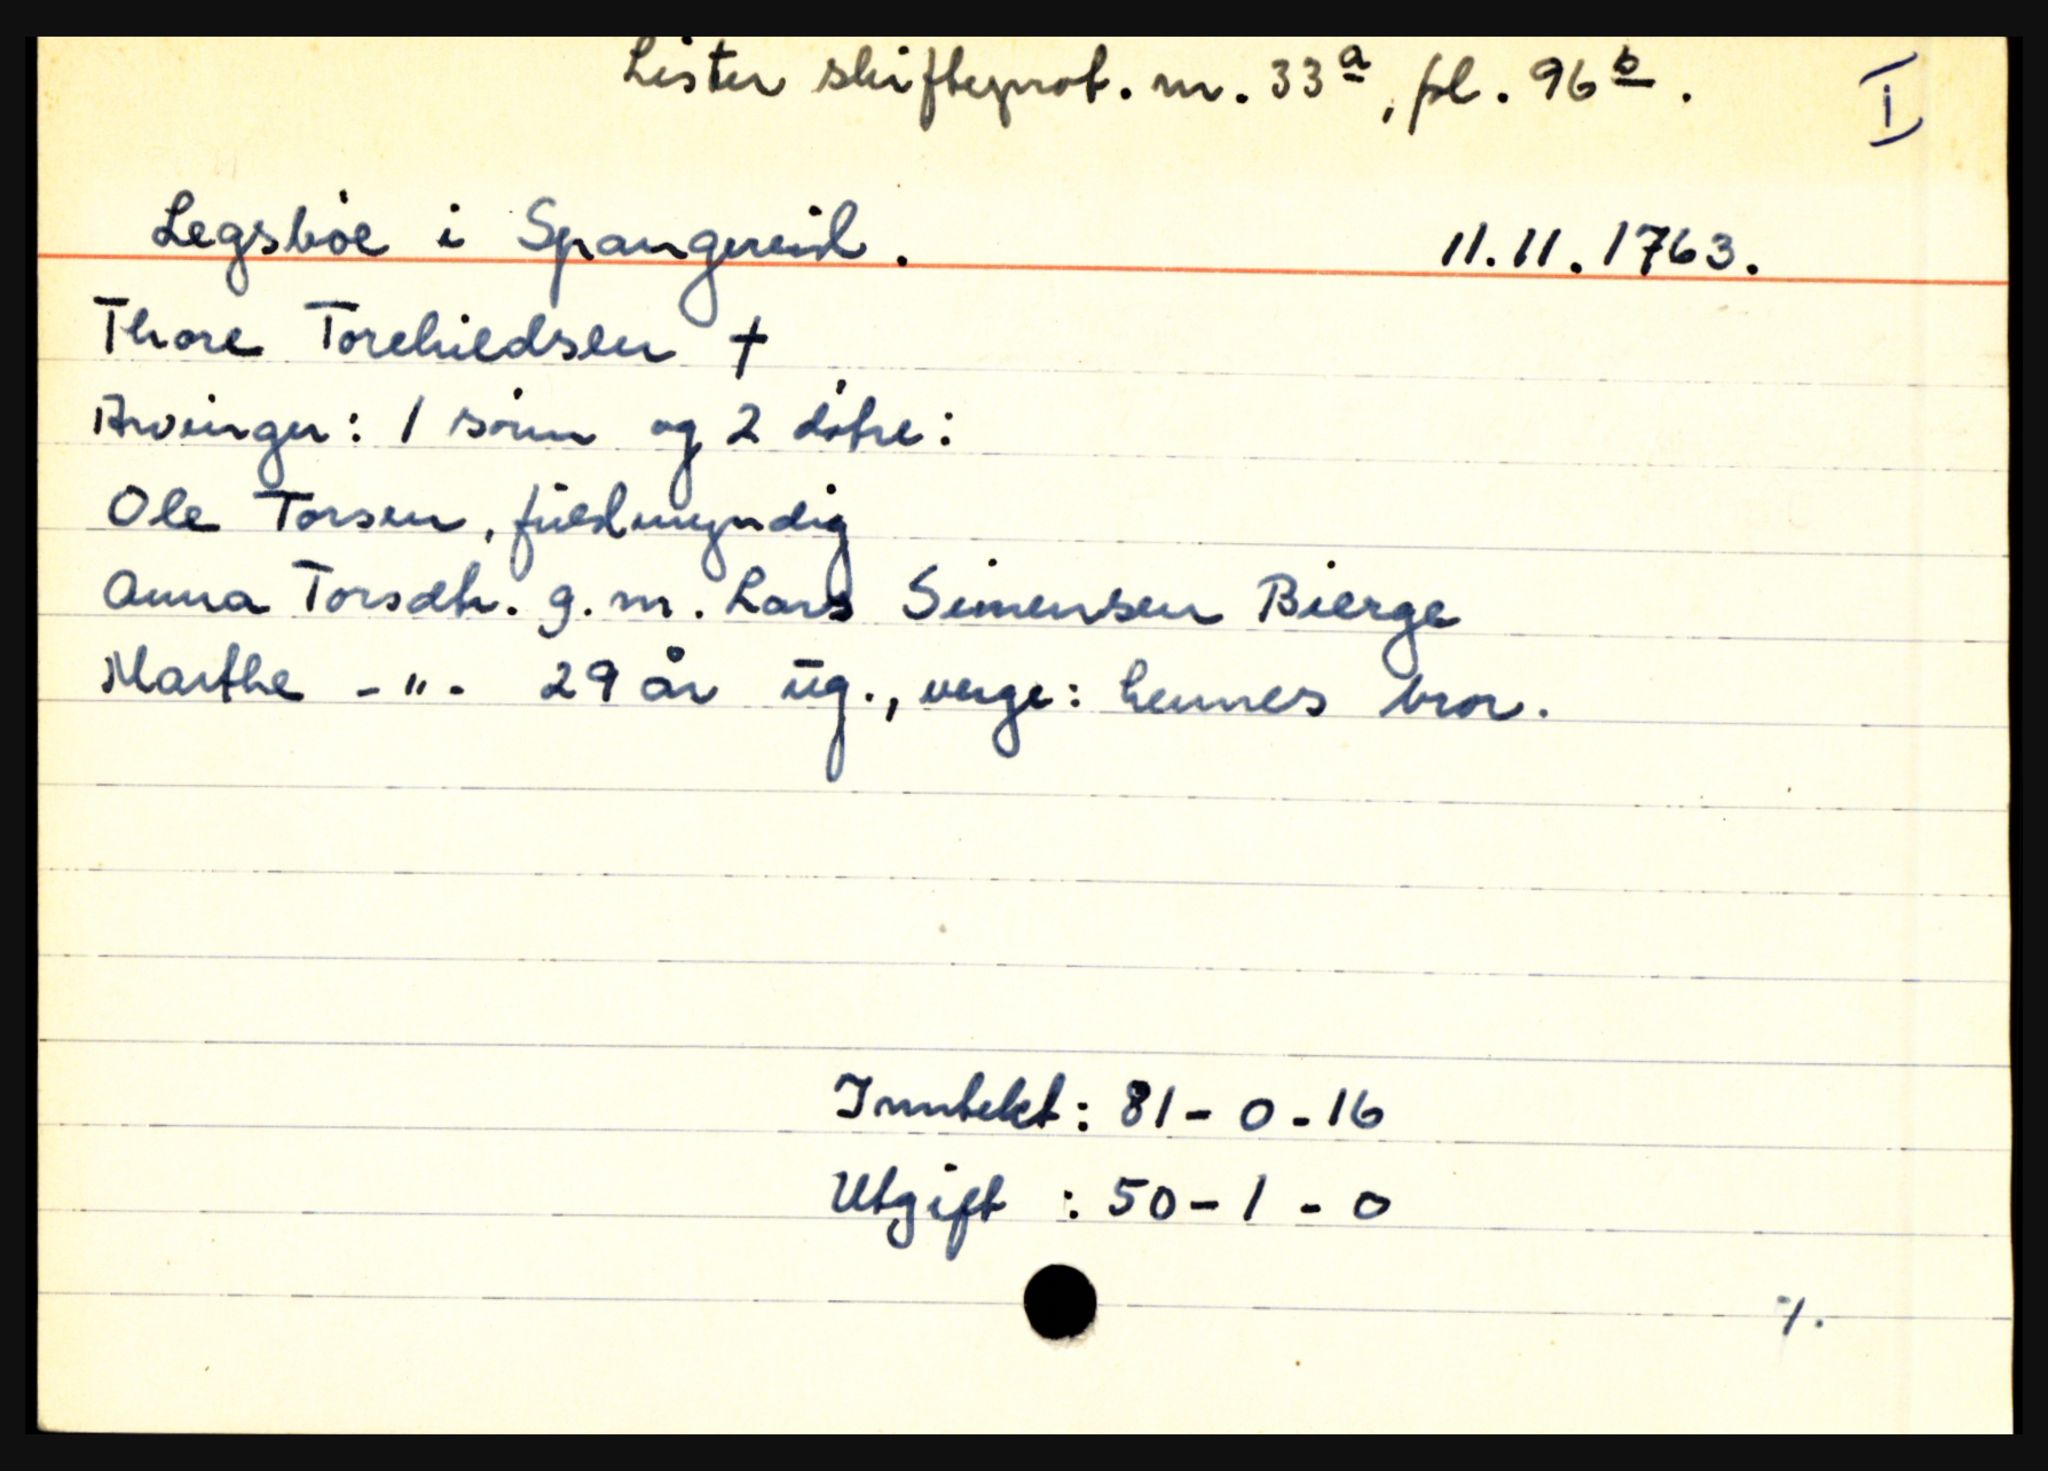 Lister skifteprot. nr. 33a, fol. 96b.
I
Legsbøe i Spangereid. 11.11.1763.
Thore Torchieldsen †
Arvinger: 1 sønn og 2 døtre:
Ole Torsen, fuldmyndig
Anna Torsdtr. g.m. Lars Simensen Bierge
Marthe -"- 29 år ug., verge: hennes bror.
Inntekt: 81 - 0 - 16
Utgift : 50 - 1 - 0